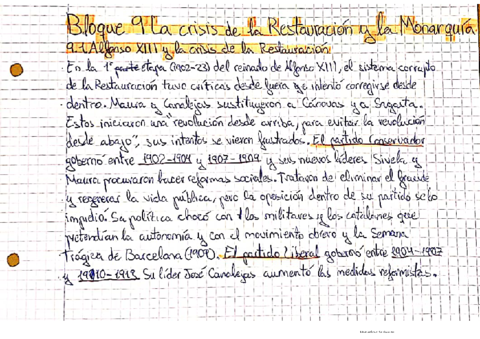 Bloque 9 La crisis de la Restauración y la Monarquía
9.1 Alfonso XIII y la crisis de la Restauración
En la 1ª parte etapa (1902-23) del reinado de Alfonso XIII, el sistema corrupto
de la Restauración tuvo críticas desde fuera y se intentó corregirse desde
dentro. Maura y Canalejas sustituyeron a Cánovas y a Sagasta.
Estos iniciaron una "revolución desde arriba, para evitar la revolución
desde abajo", sus intentos se vieron frustrados. El partido Conservador
gobernó entre 1902-1904 y 1907-1909 y sus nuevos líderes Silvela y
Maura procuraron hacer reformas sociales. Trataron de eliminar el fraude
y regenerar la vida pública, pero la oposición dentro de su partido se lo
impidió. Su política chocó con los militares y los catalanes que
pretendían la autonomía y con el movimiento obrero y la Semana
Trágica de Barcelona (1909). El partido Liberal gobernó entre 1904-1907
y 1910-1913. Su líder José Canalejas aumentó las medidas reformistas.